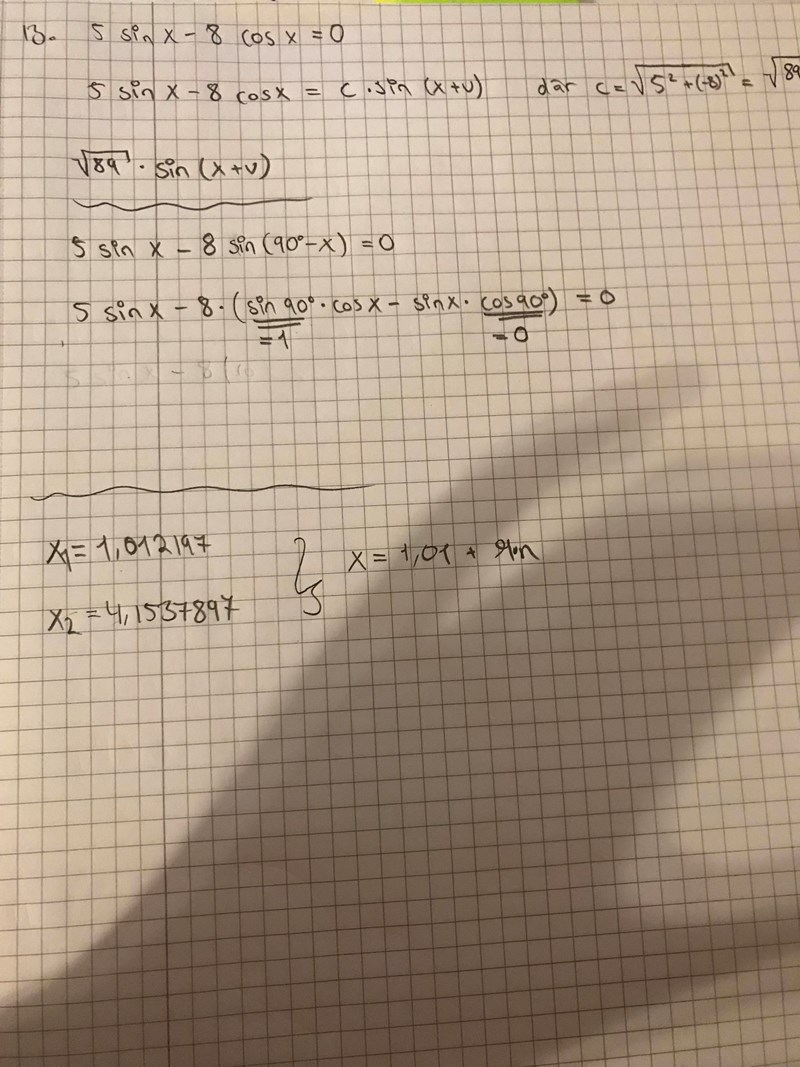 13. 5 sin x - 8 cos x = 0
5 sin x - 8 cos x = c · sin (x+v) där c = √5² + (-8)² = √89
√89 · sin (x+v)
5 sin x - 8 sin (90° - x) = 0
5 sin x - 8 · (sin 90° · cos x - sin x · cos 90°) = 0
=1 =0
5 sin x - 8 (
x₁ = 1,012197 } x = 1,01 + π·n
x₂ = 4,1537897